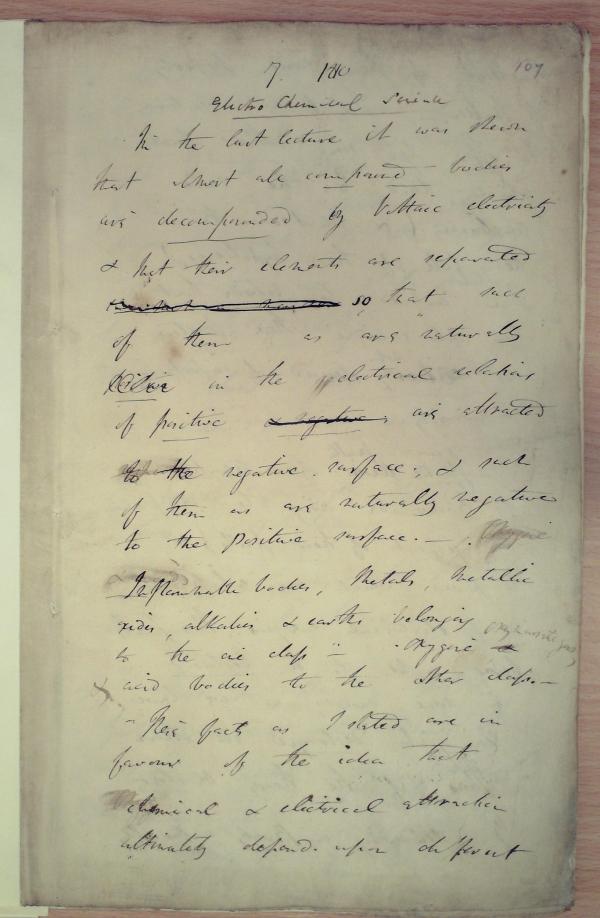 7. 1810 107
Electro Chemical Science
In the last lecture it was shewn
that almost all compound bodies
are decompounded by Voltaic electricity
& that their elements are separated
so that such
of them as are naturally
positive in the electrical relations
of positive & negative; are attracted
to the negative surface; & such
of them as are naturally negative
to the positive surface. — Oxygene
Inflammable bodies, Metals, Metallic
oxides, alkalies & earths belonging
to the one class — Oxygene &
acid bodies to the other class. —
These facts as I stated are in
favour of the idea that
chemical & electrical attraction
ultimately depend upon different